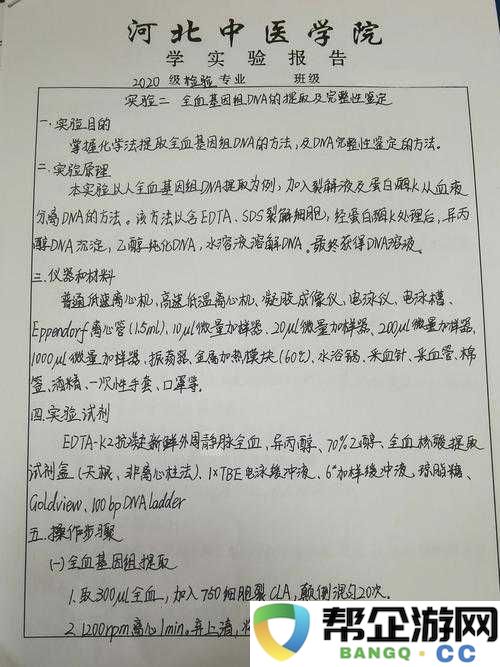 河北中医学院
学实验报告
2020 级检验专业 班级
实验二 全血基因组DNA的提取及完整性鉴定
一.实验目的
掌握化学法提取全血基因组DNA的方法,及DNA完整性鉴定的方法。
二.实验原理
本实验以人全血基因组DNA提取为例,加入裂解液及蛋白酶K从血液
分离DNA的方法。该方法以含EDTA、SDS裂解细胞,经蛋白酶K处理后,异丙
醇DNA沉淀,乙醇纯化DNA,水溶液溶解DNA。最终获得DNA溶液。
三.仪器和材料
普通低速离心机,高速低温离心机、凝胶成像仪、电泳仪、电泳槽、
Eppendorf离心管(1.5ml)、10μl微量加样器、20μl微量加样器、200μl微量加样器、
1000μl微量加样器、振荡器、金属加热模块(60℃)、水浴锅、采血针、采血管、棉
签、酒精、一次性手套、口罩等。
四.实验试剂
EDTA-K2抗凝新鲜外周静脉全血、异丙醇、70%乙醇、全血核酸提取
试剂盒(天根、非离心柱法)、1×TBE电泳缓冲液、6*加样缓冲液、琼脂糖、
Goldview、100bp DNA ladder
五.操作步骤
(一)全血基因组提取
1.取300μl全血,加入750细胞裂CLA,颠倒混匀20次。
2.1200rpm离心1min。弃上清,
帮企游网
BANGQ.CC